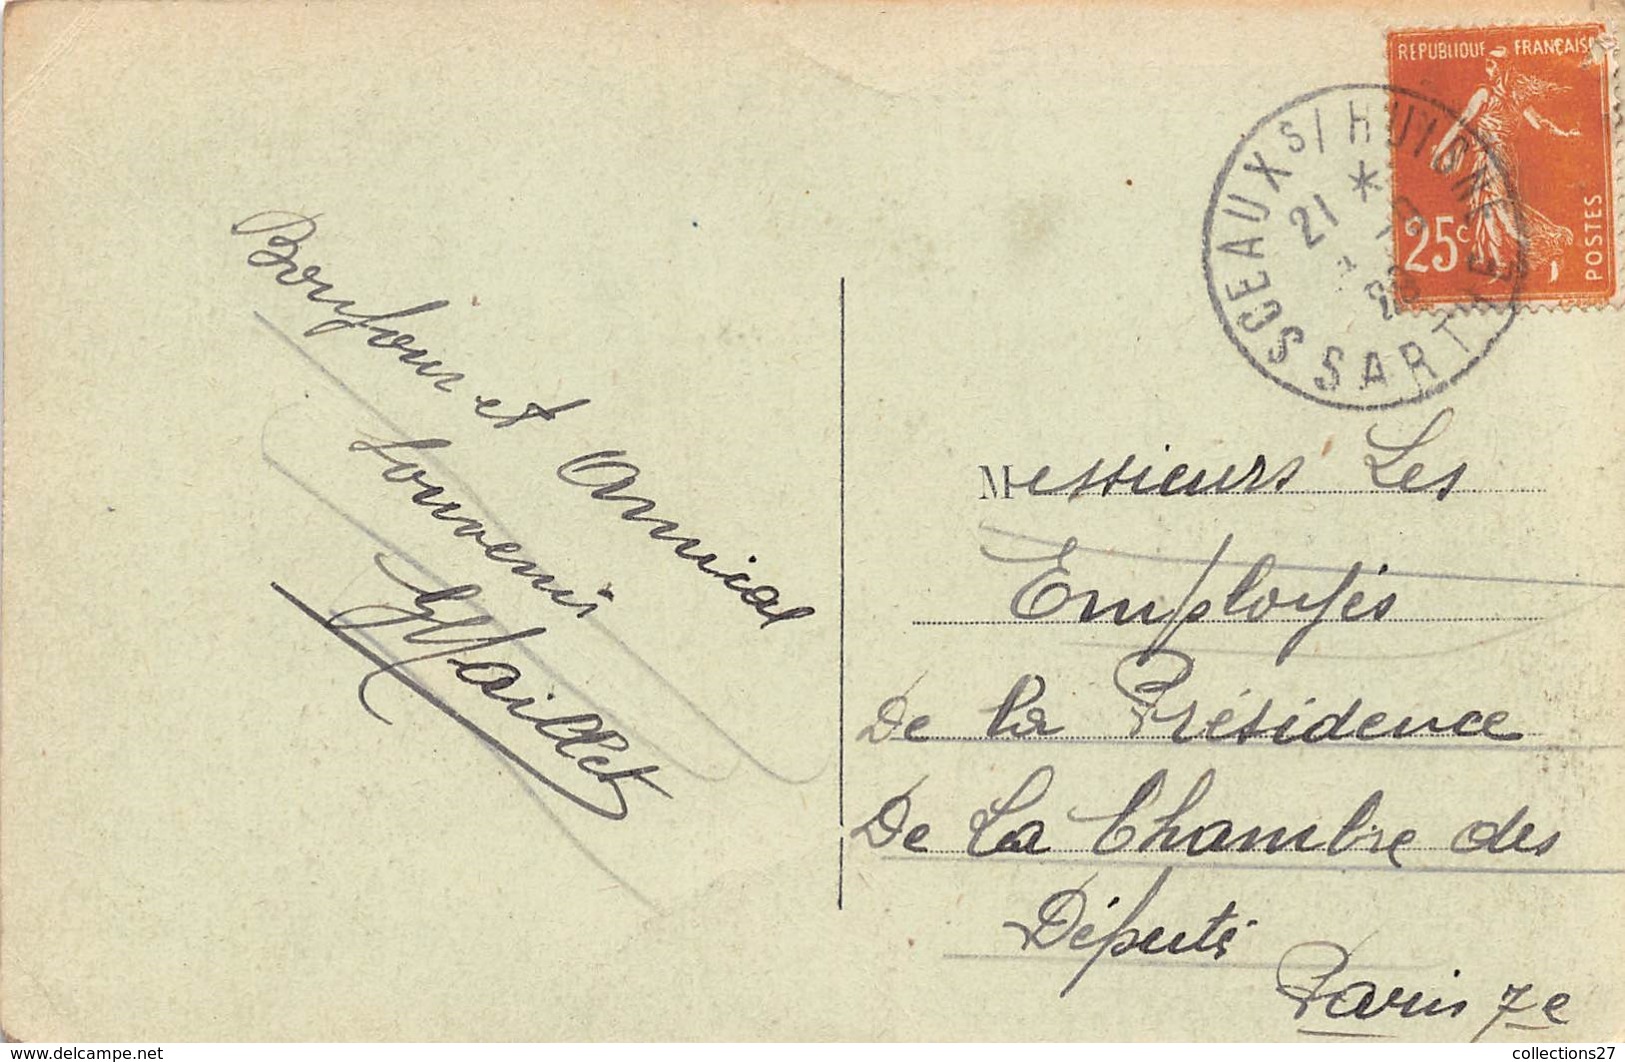 REPUBLIQUE FRANCAISE
25c
POSTES
SCEAUX S/HUISNE
21 *
SARTHE
Bonjour et Amical
Souvenir
Maillet
Messieurs Les
Employés
De la Présidence
De La Chambre des
Députés
Paris 7e
collections27